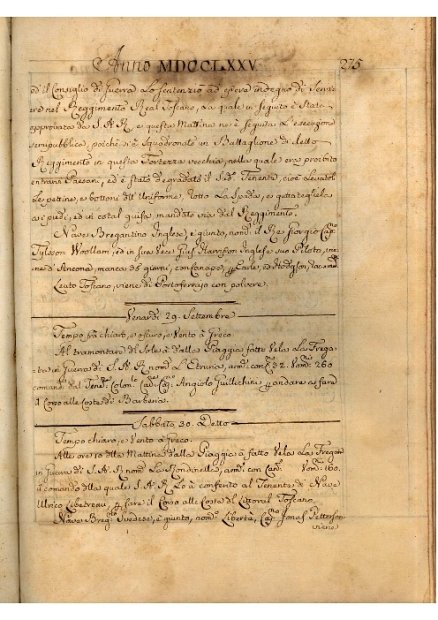 Anno MDCCLXXV. 275
ed il Consiglio di Guerra lo sentenziò ad essere indegno di servire
nel Reggimento Real Toscano, la quale in seguito è stata
approvata da S. A. R. e questa Mattina ne è seguita l'esecuzione
semipubblica, poichè si è squadronato un Battaglione di detto
Reggimento in questa Fortezza vecchia, nella quale era proibito
entrare Paesani, ed è stato degradato il Sd.º Tenente, cioè levatoli
le pettine, e bottoni dell'Uniforme, rotto la Spada, e gettategliela
a' piedi, ed in cotal guisa mandato via dal Reggimento.
Nave Bregantino Inglese, è giunto, nomº. il Re Giorgio Capº.
Tylsson Woollam, ed in sua vece Gius. Harrison Inglese suo Piloto,
d'Ancona, manca 36 giorni, con Canapa, p Earle, ed Hodgson,
Leuto Toscano, viene di Portoferrajo con polvere.
Venerdì 29. Settembre
Tempo, fà chiaro, e oscuro, e Vento à Greco.
Al tramontare del Sole à dalla Piaggia fatto Vela la Fregata
da Guerra di S. A. R. nomª. L'Etruria, armª. con Canⁿⁱ 32. Uomⁿⁱ 260
comandª. dal Tenᵗᵉ. Colonº. Cavʳᵉ. Angiolo Guillichini p andare a fare
il Corso alle Coste di Barberia.
Sabbato 30. Detto
Tempo chiaro, e Vento à Greco.
Alle ore 10 della Mattina dalla Piaggia à fatto Vela la Fregata
da Guerra di S. A. R. nomª. La Rondinella, armª. con Canⁿⁱ. Uomⁿⁱ. 160.
il comando della quale S. A. R. lo à conferito al Tenente di Nave
Ulrico p fare il Corso alle Coste del Littoral Toscano.
Nave Bregº. Svedese, è giunta, nomª. Libertà, Capº. Jonas Petterson
viene